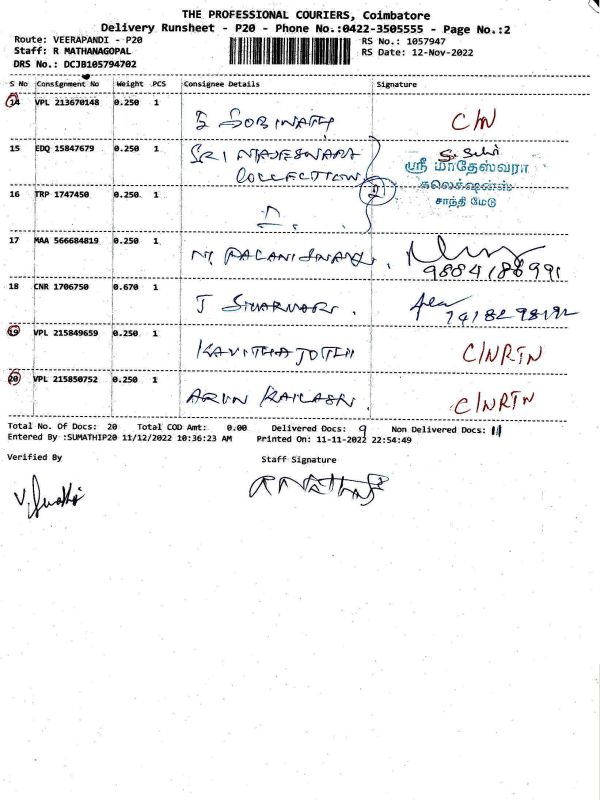 THE PROFESSIONAL COURIERS, Coimbatore
Delivery Runsheet - P20 - Phone No.:0422-3505555 - Page No.:2
Route: VEERAPANDI - P20
RS No.: 1057947
Staff: R MATHANAGOPAL
RS Date: 12-Nov-2022
DRS No.: DCJB105794702
S No Consignment No Weight PCS Consignee Details Signature
14 VPL 213670148 0.250 1 GOBINATH C/N
15 EDQ 15847679 0.250 1 SRI MAJESWARA
COLLECTION
ஸ்ரீ மாதேஸ்வரா
கலெக்ஷன்ஸ்
சாந்தி மேடு
16 TRP 1747450 0.250 1
2
17 MAA 566684819 0.250 1 N. PALANISWAMY.
9884188991
18 CNR 1706750 0.670 1 J
19 VPL 215849659 0.250 1 KAVITHA JOTHI C/NRTN
20 VPL 215850752 0.250 1 ARUN KAILASH. C/NRTN
Total No. Of Docs: 20 Total COD Amt: 0.00 Delivered Docs: 9 Non Delivered Docs: 11
Entered By :SUMATHIP20 11/12/2022 10:36:23 AM Printed On: 11-11-2022 22:54:49
Verified By Staff Signature